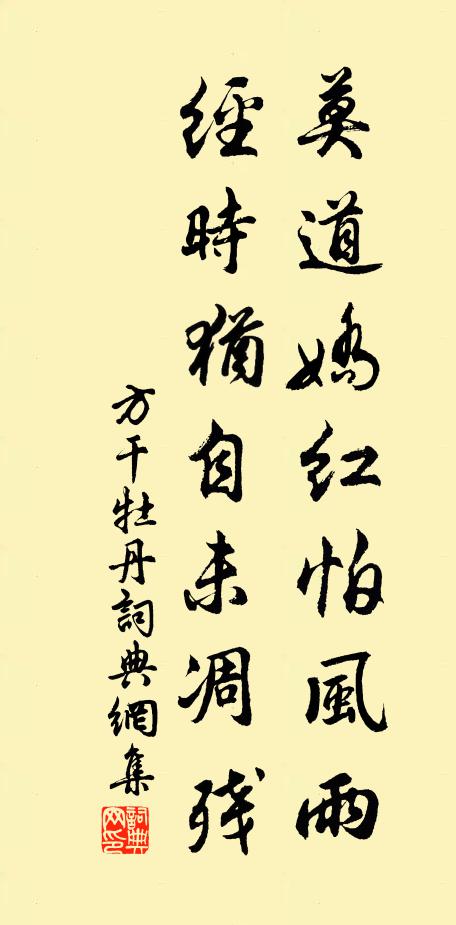 莫道嬌紅怕風雨
經時猶自未凋残
方干牡丹詞典網集
詞典网印